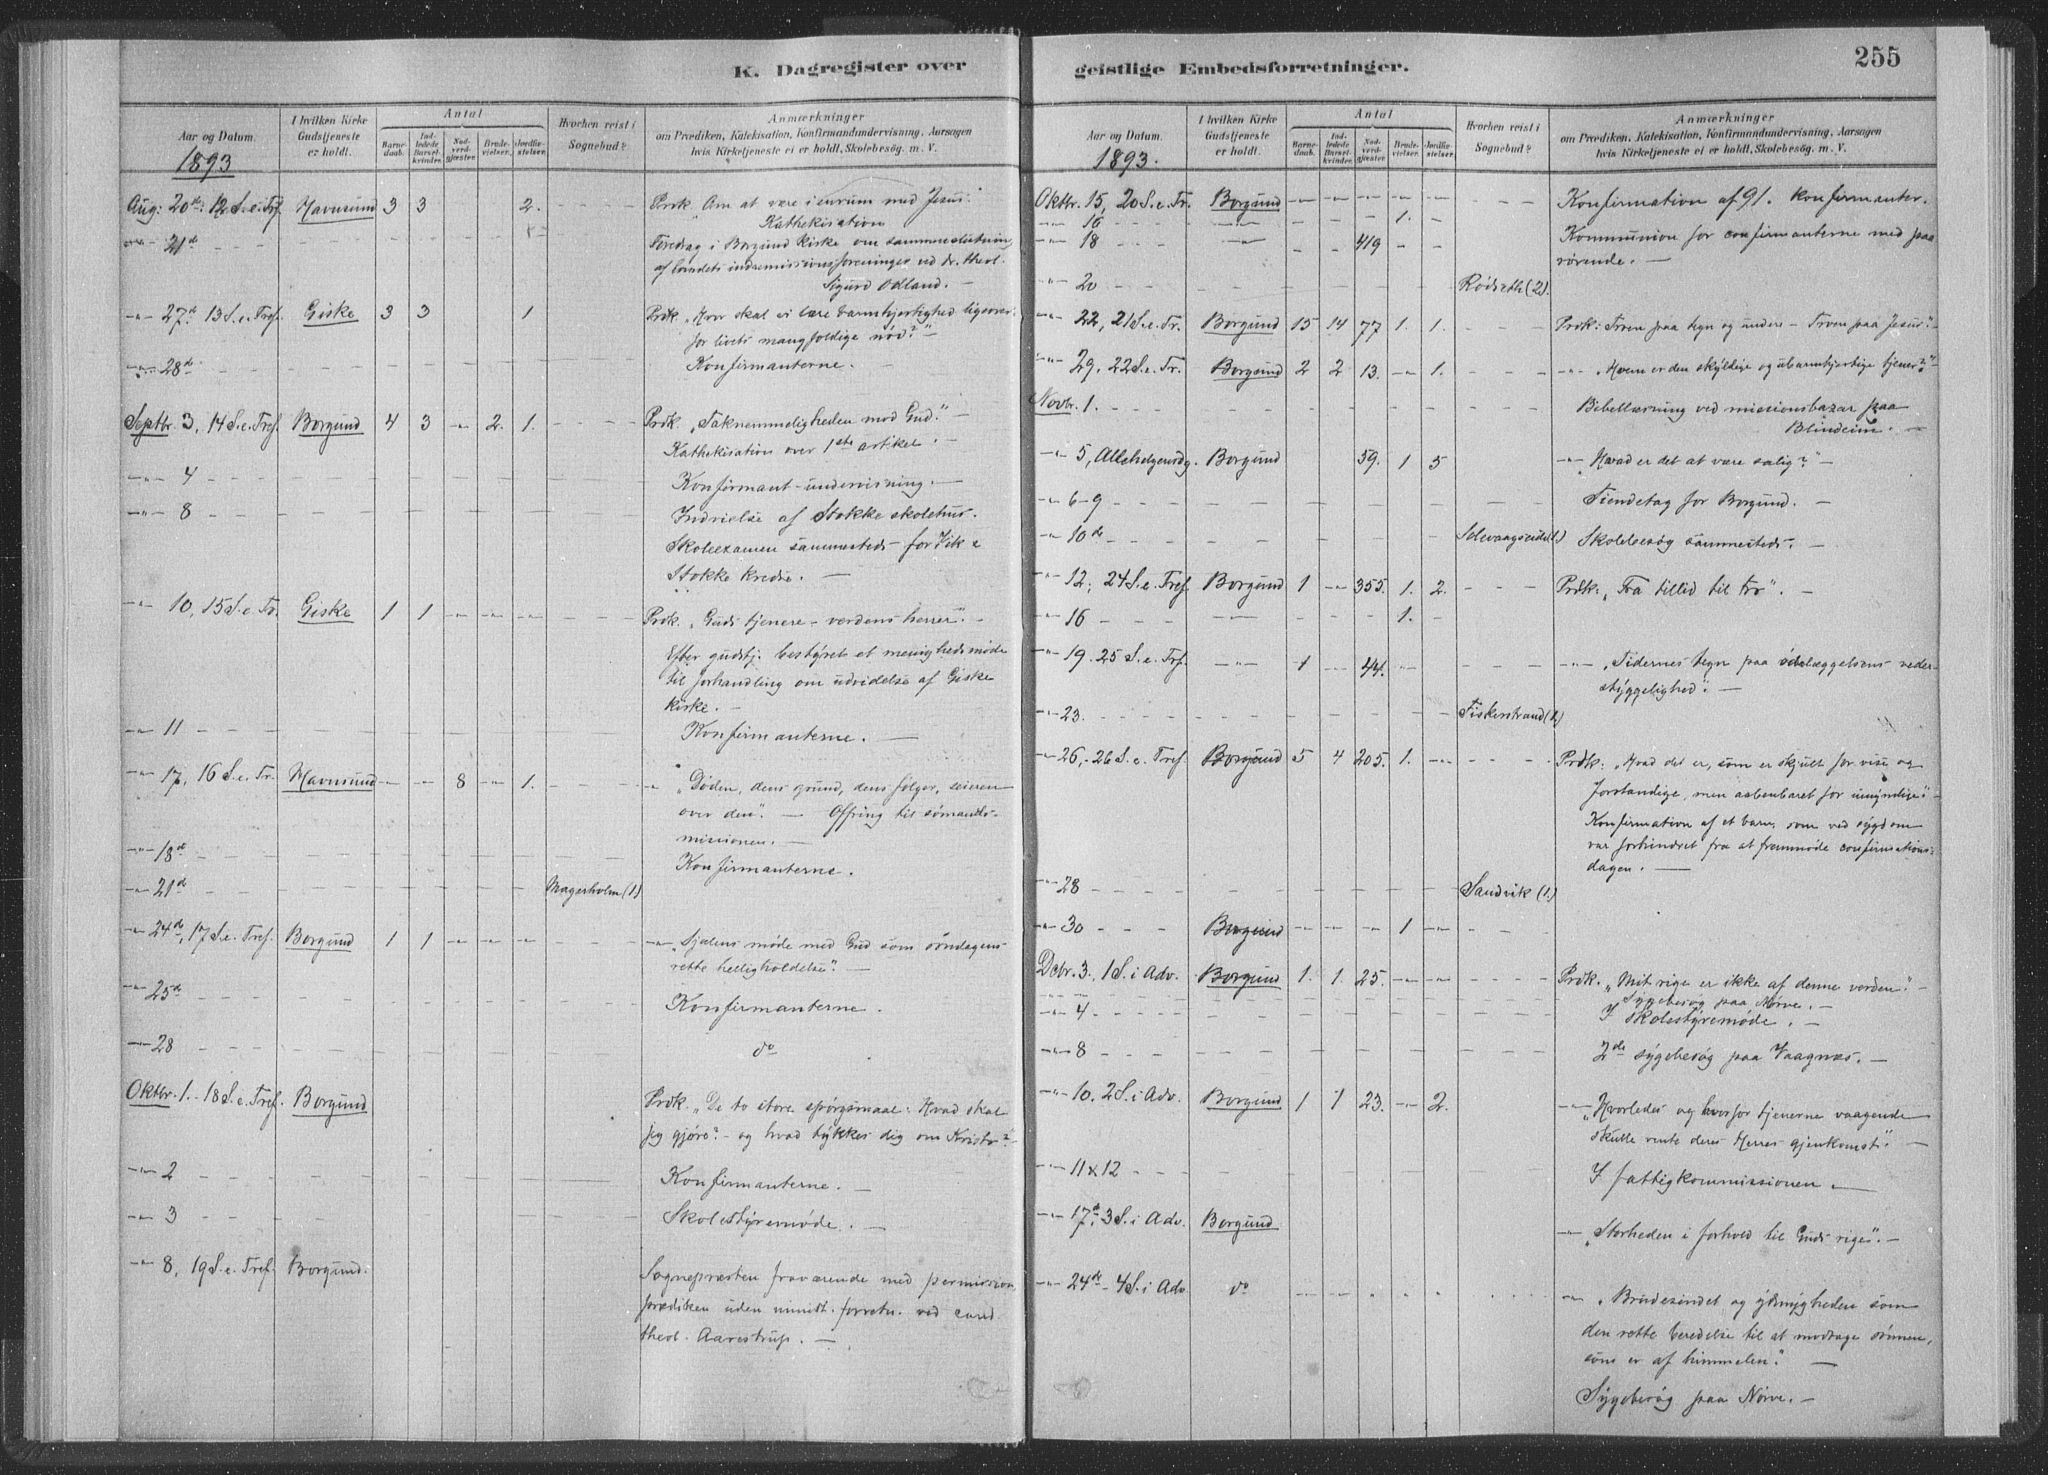 K. Dagregister over
Aar og Datum.
I hvilken Kirke Gudstjeneste er holdt.
Antal
Barnedaab.
Indledede Barselkvinder.
Nadverdgjæster
Brudevielser.
Jordfæstelser.
Hvorhen reist i Sognebud?
Anmærkninger
om Prædiken, Katekisation, Konfirmandundervisning, Aarsagen
hvis Kirketjeneste ei er holdt, Skolebesøg. m. V.
1893
Aug: 20de: 12 S. e. Tref. Havnsund 3 3 2. Prdk. "Om at være i eurum med Jesus.
Kathekisation
21d Foredrag i Borgund Kirke om sammenslutning
af landets indremissionsforeninger ved dr. theol.
Sigurd Odland. —
-"- 27d 13 S. e. Tref. Giske 3 3 1 Prdk "Hvor skal vi lære barmhjertighed ligeover-
for livets mangfoldige nød?"
-"- 28d Konfirmanterne. —
Septbr. 3, 14 S. e. Tref. Borgund 4 3 -"- 2. 1. Prdk "Taknemmeligheden mod Gud". —
Kathekisation over 1ste artikel. —
-"- 4 Konfirmant-undervisning. —
-"- 8 Indvielse af Stokke skolehus.
Skoleexamen sammesteds for Vik &
Stokke kredse. —
-"- 10, 15 S. e. Tr. Giske 1 1 Prdk. "Guds tjenere - verdens herrer". —
Efter gudstj. bestyret et menighedsmøde
til forhandling om udvidelse af Giske
kirke. —
-"- 11 Konfirmanterne. —
-"- 17, 16 S. e. Tr. Havnsund 8 1. -"- "Døden, dens grund, dens følger, seieren
over den". — Offring til sømands-
missionen. —
-"- 18d Konfirmanterne.
-"- 21d Magerholm (1.)
-"- 24d, 17 S. e. Tref. Borgund 1 1 -"- "Sjælens møde med Gud som søndagens
rette helligholdelse". —
-"- 25d Konfirmanterne.
-"- 28 do
Oktbr. 1. 18 S. e. Tref. Borgund Prdk. "De to store spørgsmaal: Hvad skal
jeg gjøre? - og hvad tykkes dig om Kristo?"
-"- 2 Konfirmanterne. —
-"- 3 Skolestyremøde. —
-"- 8, 19 S. e. Tref. Borgund. Sognepræsten fraværende med permission,
prædiken uden minist. forretn. ved cand.
theol. Aarestrup. —
geistlige Embedsforretninger.
255
Aar og Datum.
I hvilken Kirke Gudstjeneste er holdt.
Antal
Barnedaab.
Indledede Barselkvinder.
Nadverdgjæster
Brudevielser.
Jordfæstelser.
Hvorhen reist i Sognebud?
Anmærkninger
om Prædiken, Katekisation, Konfirmandundervisning, Aarsagen
hvis Kirketjeneste ei er holdt, Skolebesøg. m. V.
1893.
Oktbr. 15, 20 S. e. Tr. Borgund Konfirmation af 91. konfirmanter.
-"- 16 1.
-"- 18 419 Kommunion for confirmanterne med paa
rørende. —
-"- 20 Rødseth (2).
-"- 22, 21 S. e. Tr. Borgund 15 14 77 1. 1. Prdk: Troen paa tegn og undere - Troen paa Jesus". —
-"- 29. 22 S. e. Tr. Borgund 2 2 13. -"- 1. -"- "Hvem er den skyldige og ubarmhjertige tjener?"
Novbr. 1. Bibellæsning ved missionsbazar paa
Blindeim. —
-"- 5, Allehelgensdg. Borgund 59. 1 5 -"- "Hvad er det at være salig?" —
-"- 6-9 Tiendetag for Borgund. —
-"- 10de Solevaagseidet (1.) Skolebesøg sammesteds. —
-"- 12; 24 S. e. Tref. Borgund 1 -"- 355. 1. 2. Prdk: "Fra tillid til tro". —
-"- 16 1.
-"- 19. 25 S. e. Trf. -"- 1 44. -"- "Tidernes tegn paa ødelæggelsens veder-
styggelighed". —
-"- 23. Fiskerstrand (1.)
-"- 26, 26 S. e. Tref. Borgund 5 4 205. 1. Prdk: "Hvad det er, som er skjult for vise og
forstandige, men aabenbaret for umyndige".
Konfirmation af et barn, som ved sygdom
var forhindret fra at fremmøde confirmations-
dagen. —
-"- 28 Sandvik (1.)
-"- 30 Borgund 1
Dcbr. 3. 1 S. i Adv. Borgund 1. 1. 25. Prdk. "Mit rige er ikke af denne verden". —
Sygebesøg paa Nørve. —
-"- 4 I skolestyremøde. —
-"- 8 2de sygebesøg paa Vaagnæs. —
-"- 10. 2 S. i Adv. Borgund 1 1 23. -"- 2. -"- "Hvorledes og hvorfor tjenerne vaagende
skulle vente deres Herres gjenkomst". —
-"- 11 & 12 I fattigkommissionen. —
-"- 17d 3 S. i Adv. Borgund -"- "Storheden i forhold til Guds rige". —
-"- 24de 4 S. i Adv. do -"- "Brudesindet og ydmygheden som
den rette beredelse til at modtage sønnen,
som er af himmelen". —
Sygebesøg paa Nørve. —